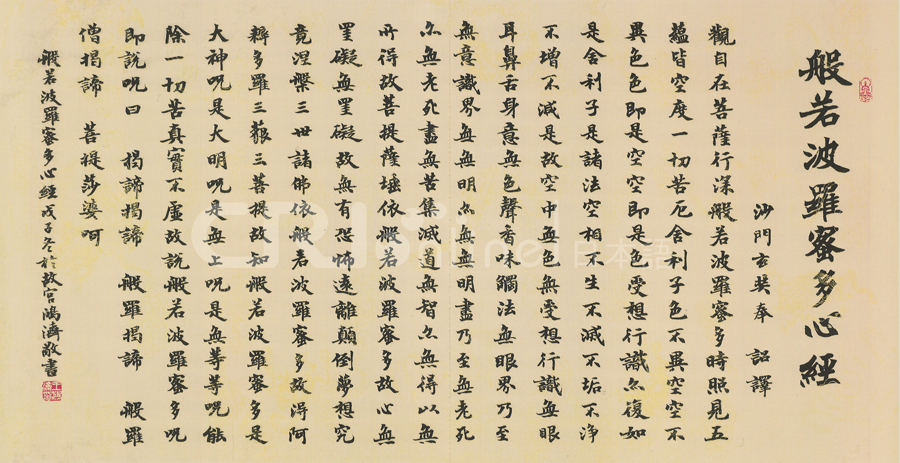 般若波羅蜜多心經
沙門玄奘奉 詔譯
觀自在菩薩行深般若波羅蜜多時照見五
蘊皆空度一切苦厄舍利子色不異空空不
異色色即是空空即是色受想行識亦復如
是舍利子是諸法空相不生不滅不垢不淨
不增不減是故空中無色無受想行識無眼
耳鼻舌身意無色聲香味觸法無眼界乃至
無意識界無無明亦無無明盡乃至無老死
亦無老死盡無苦集滅道無智亦無得以無
所得故菩提薩埵依般若波羅蜜多故心無
罣礙無罣礙故無有恐怖遠離顛倒夢想究
竟涅槃三世諸佛依般若波羅蜜多故得阿
耨多羅三藐三菩提故知般若波羅蜜多是
大神呪是大明呪是無上呪是無等等呪能
除一切苦真實不虛故說般若波羅蜜多呪
即說呪曰 揭諦揭諦 般羅揭諦 般羅
僧揭諦 菩提莎婆呵
般若波羅蜜多心經戊子冬於故宮鴻濟敬書
CRI online 日本語